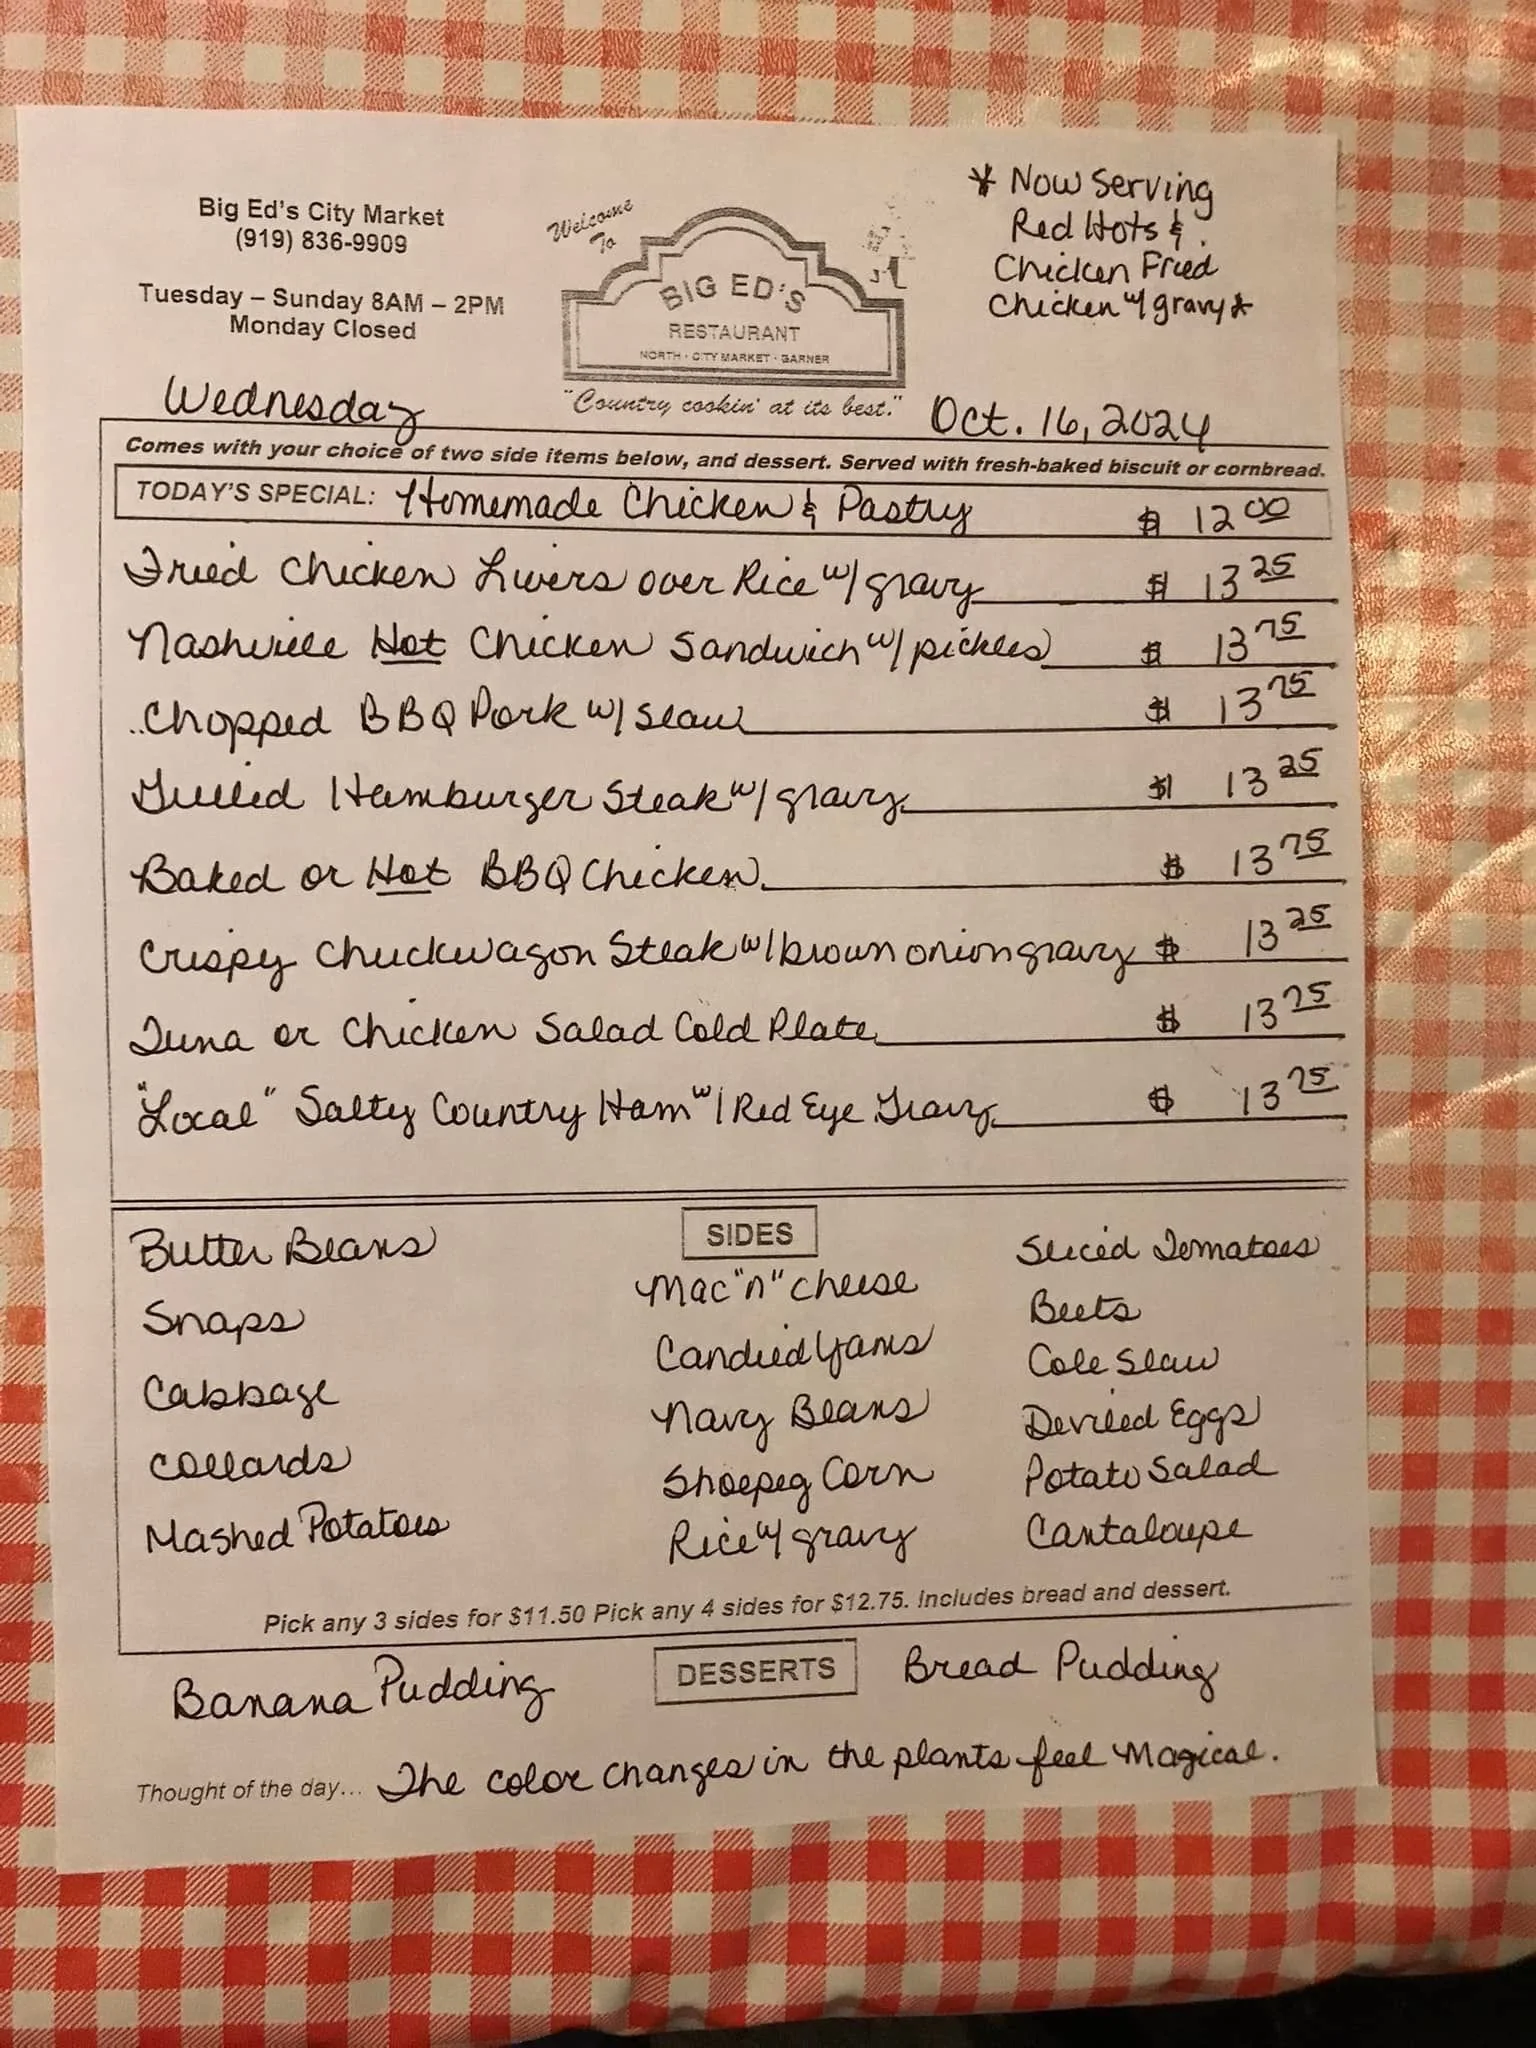 Big Ed's City Market
(919) 836-9909
Tuesday – Sunday 8AM – 2PM
Monday Closed
Welcome
To
BIG ED'S
RESTAURANT
NORTH · CITY MARKET · GARNER
"Country cookin' at its best."
* Now Serving
Red Hots &
Chicken Fried
Chicken w/ gravy *
Wednesday Oct. 16, 2024
Comes with your choice of two side items below, and dessert. Served with fresh-baked biscuit or cornbread.
TODAY'S SPECIAL: Homemade Chicken & Pastry $ 12 00
Fried Chicken Livers over Rice w/ gravy $ 13 25
Nashville Hot Chicken Sandwich w/ pickles $ 13 75
Chopped BBQ Pork w/ slaw $ 13 75
Grilled Hamburger Steak w/ gravy $ 13 25
Baked or Hot BBQ Chicken $ 13 75
Crispy Chuckwagon Steak w/ brown onion gravy $ 13 25
Tuna or Chicken Salad Cold Plate $ 13 75
"Local" Salty Country Ham w/ Red Eye Gravy $ 13 75
SIDES
Butter Beans
Snaps
Cabbage
Collards
Mashed Potatoes
Mac "n" Cheese
Candied Yams
Navy Beans
Shoepeg Corn
Rice w/ gravy
Sliced Tomatoes
Beets
Cole Slaw
Deviled Eggs
Potato Salad
Cantaloupe
Pick any 3 sides for $11.50 Pick any 4 sides for $12.75. Includes bread and dessert.
DESSERTS
Banana Pudding
Bread Pudding
Thought of the day... The color changes in the plants feel Magical.